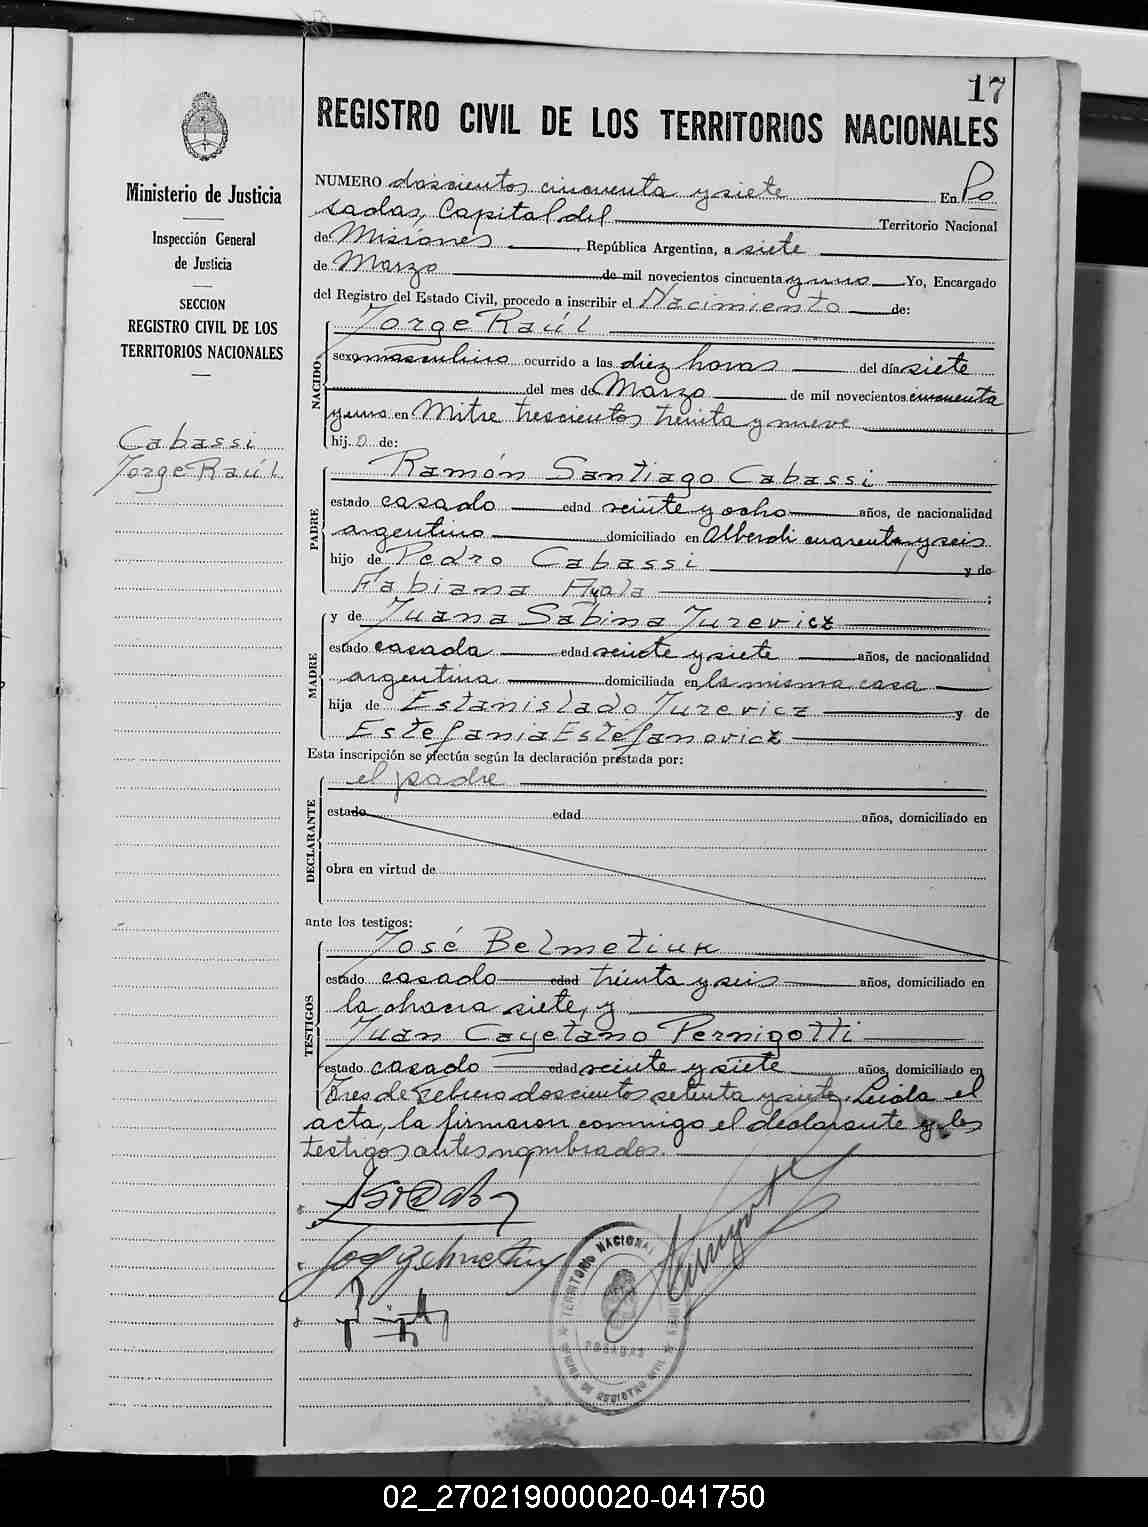 17
REGISTRO CIVIL DE LOS TERRITORIOS NACIONALES
Ministerio de Justicia
Inspección General
de Justicia
SECCION
REGISTRO CIVIL DE LOS
TERRITORIOS NACIONALES
Cabassi
Jorge Raúl
NUMERO doscientos cincuenta y siete En Po
sadas, Capital del Territorio Nacional
de Misiones, República Argentina, a siete
de Marzo de mil novecientos cincuenta y uno Yo, Encargado
del Registro del Estado Civil, procedo a inscribir el Nacimiento de:
NACIDO
Jorge Raúl
sexo masculino ocurrido a las diez horas del día siete
del mes de Marzo de mil novecientos cincuenta
y uno en Mitre trescientos treinta y nueve
hij.o de:
PADRE
Ramón Santiago Cabassi
estado casado edad veinte y ocho años, de nacionalidad
argentino domiciliado en Alberdi cuarenta y seis
hijo de Pedro Cabassi y de
Fabiana Ayala ;
MADRE
y de Juana Sabina Jurevicz
estado casada edad veinte y siete años, de nacionalidad
argentina domiciliada en la misma casa
hija de Estanislado Jurevicz y de
Estefania Estefanovicz
Esta inscripción se efectúa según la declaración prestada por:
DECLARANTE
el padre
estado edad años, domiciliado en
obra en virtud de
ante los testigos:
TESTIGOS
José Belmetiuk
estado casado edad treinta y seis años, domiciliado en
la chacra siete, y
Juan Cayetano Pernigotti
estado casado edad veinte y siete años, domiciliado en
Tres de Febrero doscientos setenta y siete. Leída el
acta, la firmaron conmigo el declarante y los
testigos antes nombrados.
TERRITORIO NACIONAL
POSADAS
OFICINA DE REGISTRO CIVIL
02_270219000020-041750